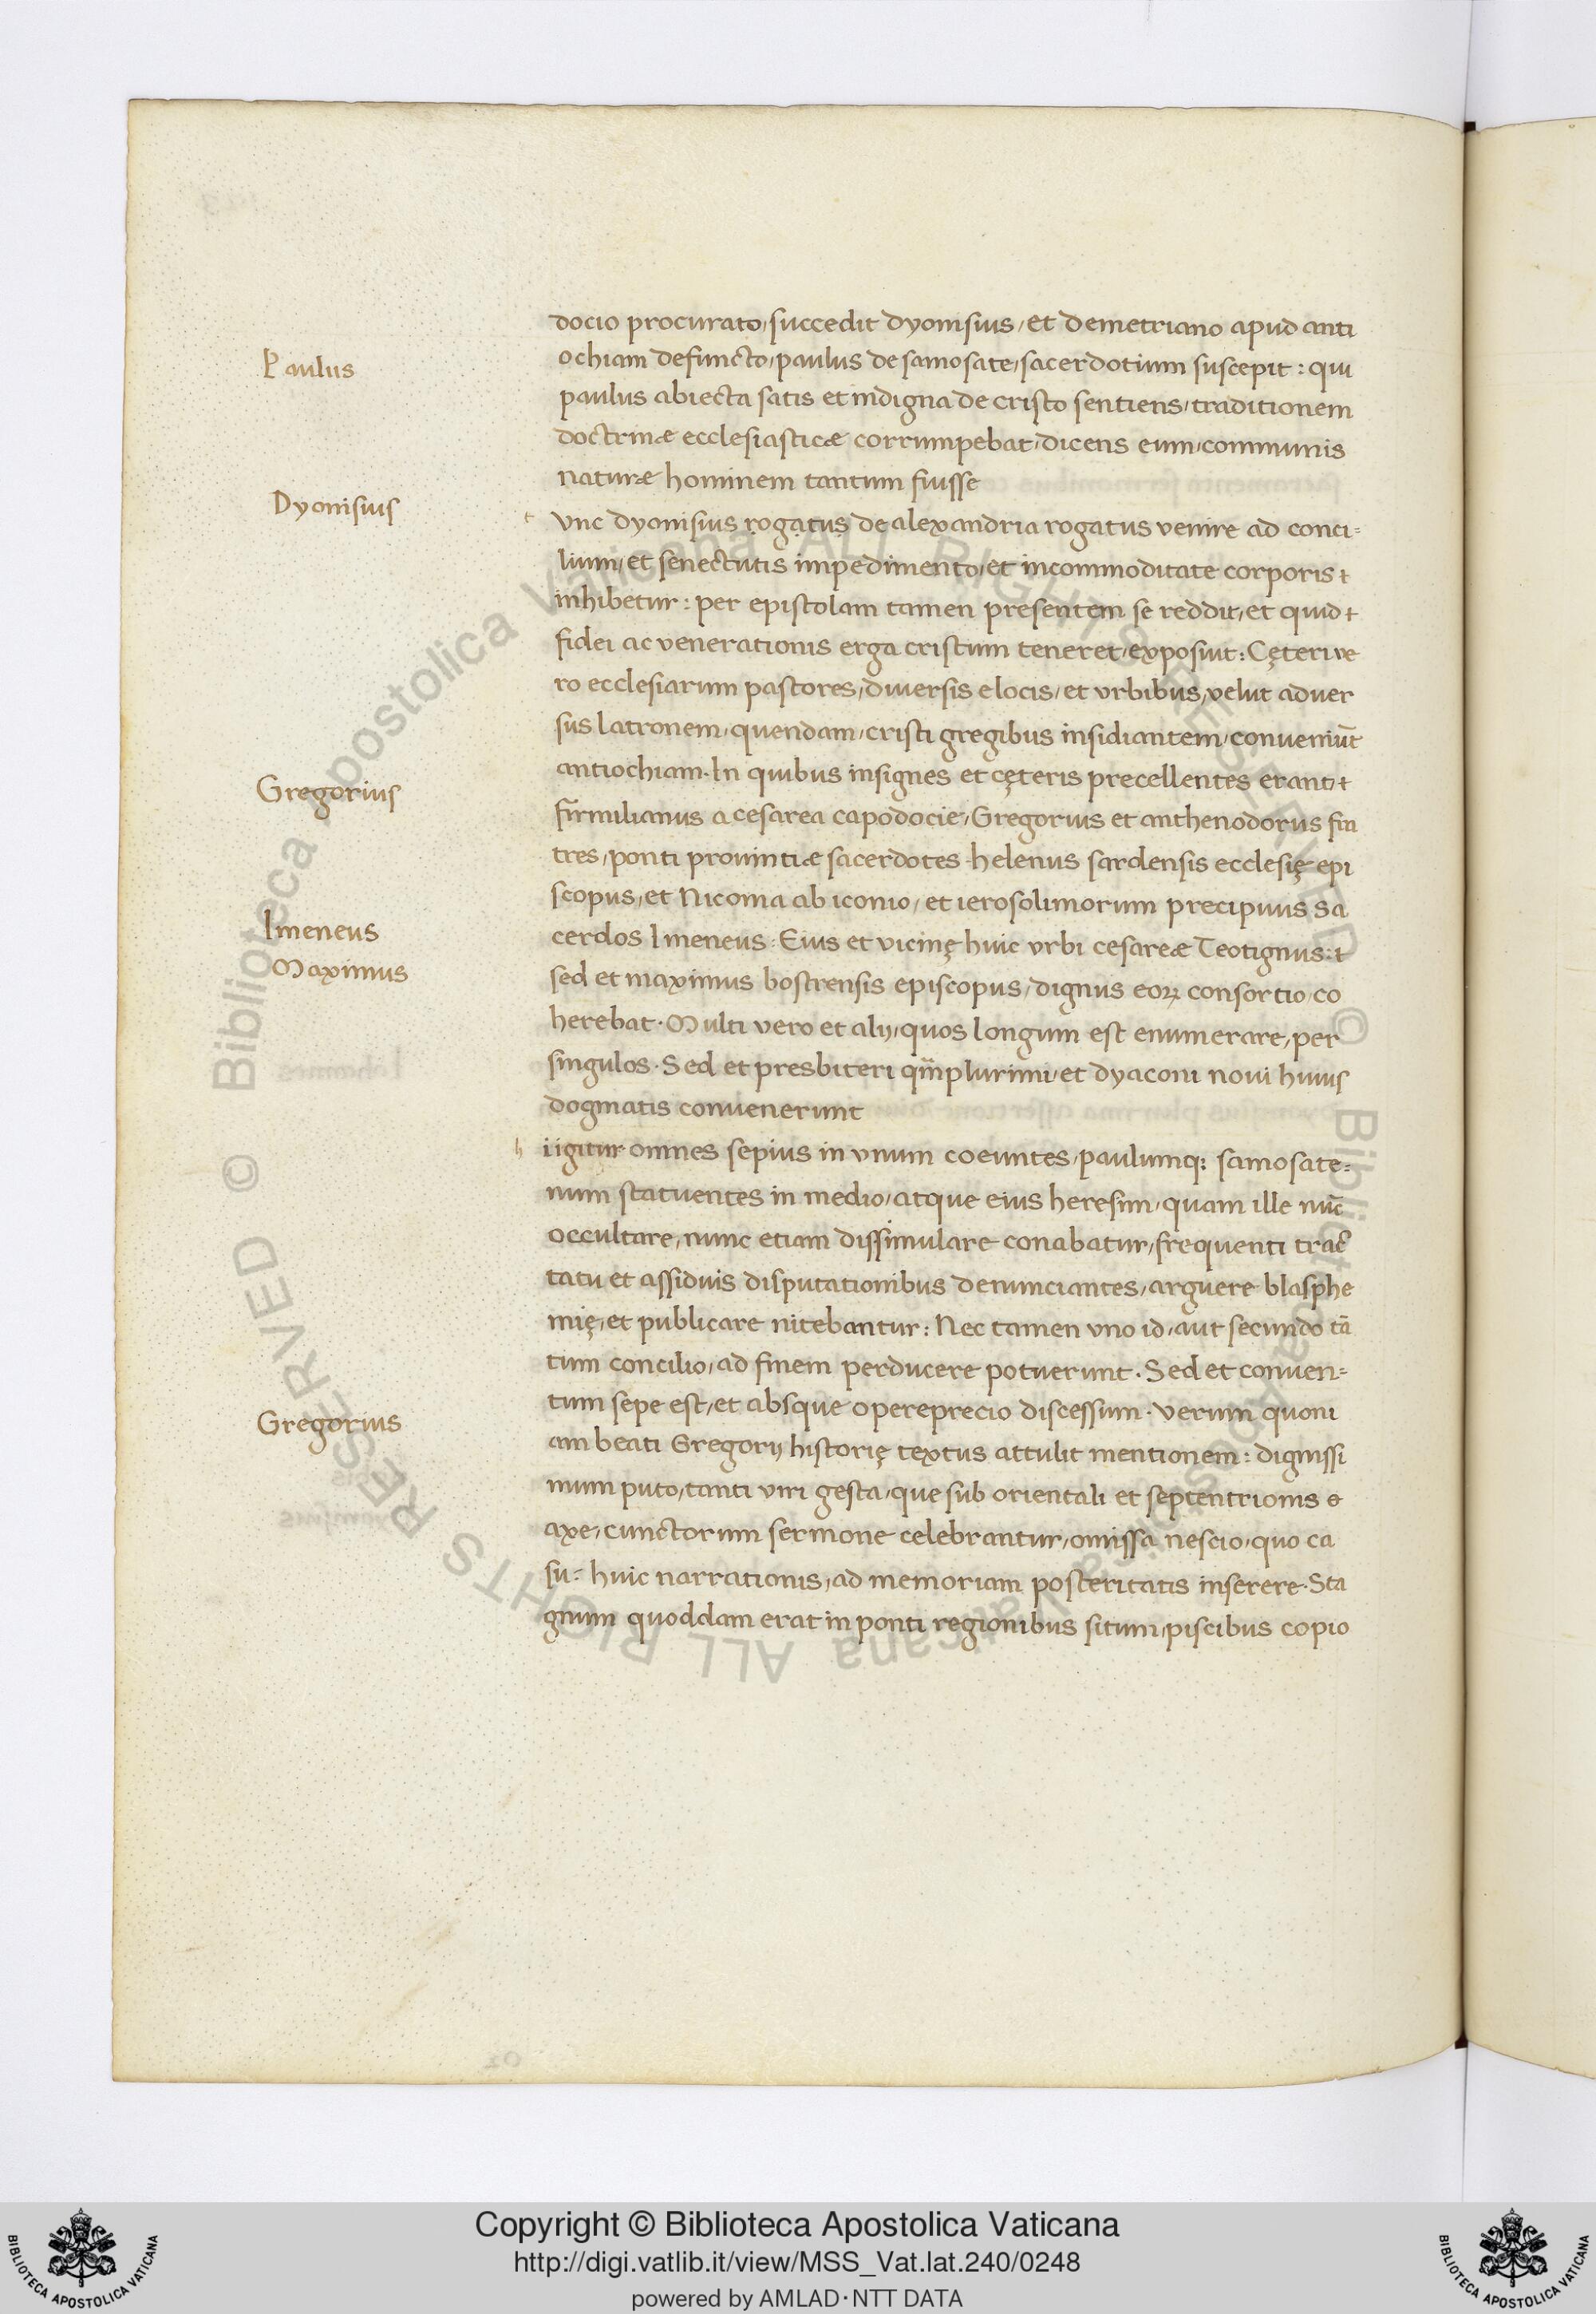 docio procurato, succedit dyonisius, et demetriano apud anti
Paulus
ochiam defuncto, paulus de samosate, sacerdotium suscepit: qui
paulus abiecta satis et indigna de cristo sentiens, traditionem
doctrinæ ecclesiasticæ corrumpebat, dicens eum, communis
naturæ hominem tantum fuisse
Dyonisius
t vnc dyonisius rogatus de alexandria rogatus venire ad conci=
lium, et senectutis impedimento, et incommoditate corporis
inhibetur: per epistolam tamen presentem se reddit, et quid
fidei ac venerationis erga cristum teneret, exposuit: Cęteri ve
ro ecclesiarum pastores, diversis e locis, et vrbibus, velut adver
sus latronem, quendam, cristi gregibus insidiantem, conveniūt
antiochiam. In quibus insignes et cęteris precellentes erant,
Gregorius
firmilianus a cesarea capodocie, Gregorius et anthenodorus fra
tres, ponti provintiæ sacerdotes helenus sardensis ecclesię epi
scopus, et Nicoma ab iconio, et ierosolimorum precipuus sa
Imeneus
cerdos Imeneus: Eius et vicinę huic vrbi cesareæ Teotignus:
Maximus
sed et maximus bostrensis episcopus, dignus eoꝝ consortio co
herebat. Multi vero et alij, quos longum est enumerare, per
singulos. Sed et presbiteri qm̄plurimi, et dyaconi novi huius
dogmatis convenerunt
h i igitur omnes sepius in vnum coeuntes, paulumq; samosate=
num statuentes in medio, atque eius heresim, quam ille nūc
occultare, nunc etiam dissimulare conabatur, frequenti trac
tatu et assiduis disputationibus denunciantes, arguere blasphe
mię, et publicare nitebantur: Nec tamen vno id, aut secundo tā
tum concilio, ad finem perducere potuerunt. Sed et conven=
tum sepe est, et absque opereprecio discessum. verum quoni
Gregorius
am beati Gregorij historię textus attulit mentionem: dignissi
mum puto, tanti viri gesta, que sub orientali et septentrionis
axe, cunctorum sermone celebrantur, omissa nescio, quo ca
su= huic narrationis, ad memoriam posteritatis inserere. Sta
gnum quoddam erat in ponti regionibus situm, piscibus copio
Copyright © Biblioteca Apostolica Vaticana
http://digi.vatlib.it/view/MSS_Vat.lat.240/0248
powered by AMLAD·NTT DATA
BIBLIOTECA APOSTOLICA VATICANA
BIBLIOTECA APOSTOLICA VATICANA
© Biblioteca Apostolica Vaticana ALL RIGHTS RESERVED © Biblioteca Apostolica Vaticana ALL RIGHTS RESERVED